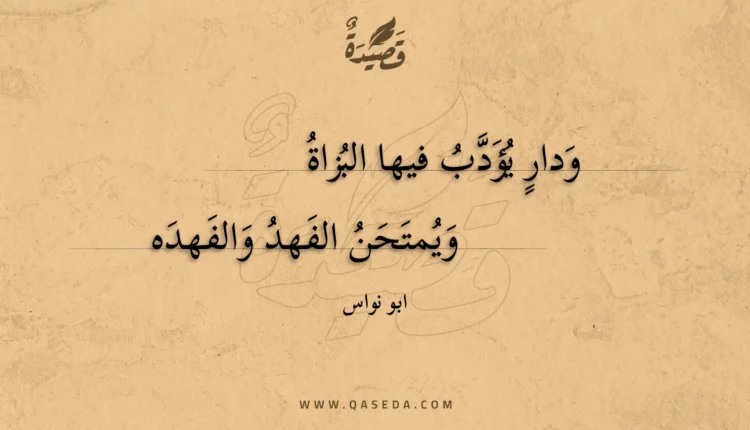 قَصِيْدَةٌ
وَدارٍ يُؤَدَّبُ فيها البُزاةُ
وَيُمتَحَنُ الفَهدُ وَالفَهدَه
ابو نواس
WWW.QASEDA.COM